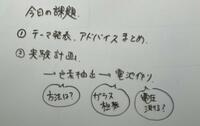 今日の課題.
① テーマ発表、アドバイスまとめ.
② 実験計画.
→ 色素抽出 → 電池作り
方法は?
ガラス
電圧
測る?